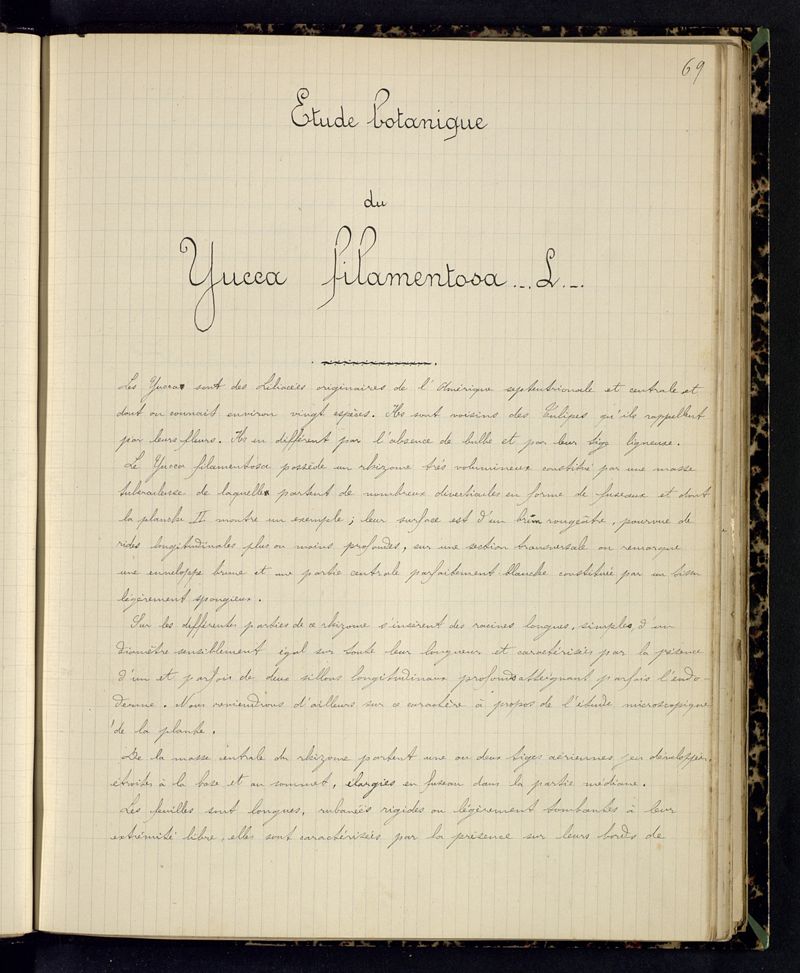 69
Etude botanique
du
Yucca filamentosa... L...
Les Yucca sont des Liliacées originaires de l'Amérique septentrionale et centrale et
dont on connait environ vingt espèces. Ils sont voisins des Tulipes qu'ils rappellent
par leurs fleurs. Ils en diffèrent par l'absence de bulbe et par leur tige ligneuse.
Le Yucca filamentosa possède un rhizome très volumineux constitué par une masse
tuberculeuse de laquelle partent de nombreux diverticules en forme de fuseaux et dont
la planche II montre un exemple ; leur surface est d'un brun rougeâtre, pourvue de
rides longitudinales plus ou moins profondes, sur une section transversale on remarque
une enveloppe brune et une partie centrale parfaitement blanche constituée par un tissu
légèrement spongieux.
Sur les différentes parties de ce rhizome s'insèrent des racines longues, simples, d'un
diamètre sensiblement égal sur toute leur longueur et caractérisées par la présence
d'un et parfois de deux sillons longitudinaux profonds atteignant parfois l'endo-
derme. Nous reviendrons d'ailleurs sur ce caractère à propos de l'étude microscopique
de la plante.
De la masse centrale du rhizome partent une ou deux tiges aériennes peu développées,
étroites à la base et au sommet, élargies en fuseau dans la partie médiane.
Les feuilles sont longues, rubanées rigides ou légèrement tombantes à leur
extrémité libre, elles sont caractérisées par la présence sur leurs bords de